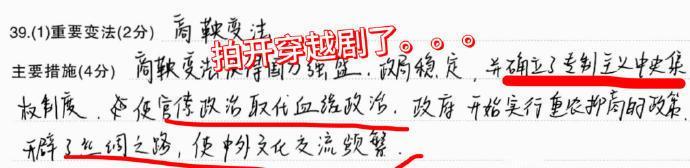 39.(1)重要变法(2分) 商鞅变法
拍开穿越剧了。。。
主要措施(4分) 商鞅变法使得国力强盛,政局稳定,并确立了专制主义中央集
权制度,使官僚政治取代血缘政治,政府开始实行重农抑商的政策
开辟了丝绸之路,使中外文化交流频繁.